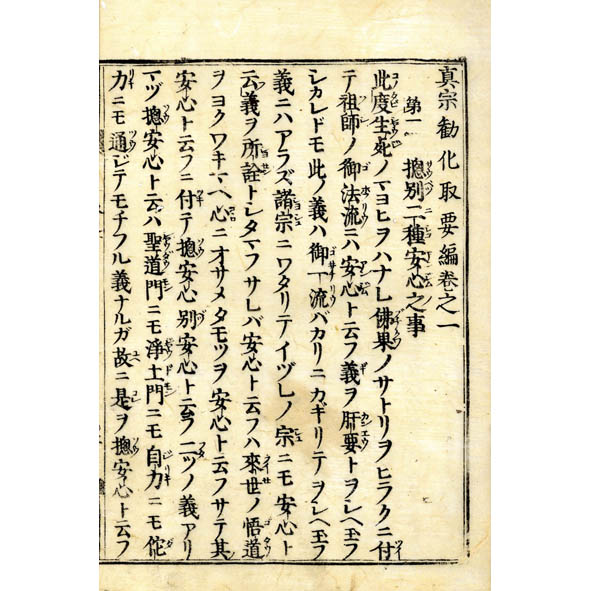 真宗勧化取要編巻之一
第一　摠別二種安心之事
此度生死ノマヨヒヲハナレ佛果ノサトリヲヒラクニ付
テ祖師ノ御法流ニハ安心ト云フ義ヲ肝要トヲシヘ玉フ
シカレドモ此ノ義ハ御一流バカリニカギリテヲシヘ玉フ
義ニハアラズ諸宗ニワタリテイヅレノ宗ニモ安心ト
云義ヲ所詮トシタマフサレバ安心ト云フハ來世ノ悟道
ヲヨクワキマヘ心ニオサメタモツヲ安心ト云フサテ其
安心ト云フニ付テ摠安心別安心ト云フ二ツノ義アリ
マヅ摠安心ト云ハ聖道門ニモ浄土門ニモ自力ニモ佗
力ニモ通ジテモチフル義ナルガ故ニ是ヲ摠安心ト云フ